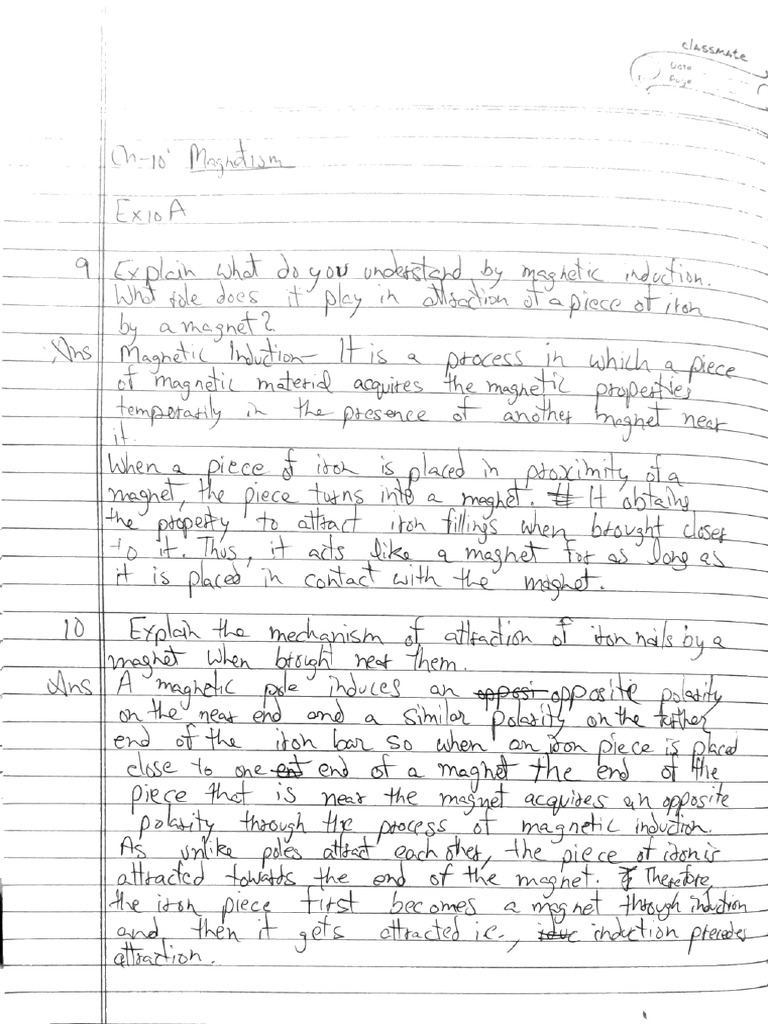 classmate
Date
Page
Ch-10 Magnetism
Ex 10 A
9 Explain what do you understand by magnetic induction.
What role does it play in attraction of a piece of iron
by a magnet?
Ans Magnetic Induction- It is a process in which a piece
of magnetic material acquires the magnetic properties
temporarily in the presence of another magnet near
it.
When a piece of iron is placed in proximity of a
magnet, the piece turns into a magnet. It obtains
the property to attract iron fillings when brought closer
to it. Thus, it acts like a magnet for as long as
it is placed in contact with the magnet.
10 Explain the mechanism of attraction of iron nails by a
magnet when brought near them.
Ans A magnetic pole induces an opposite polarity
on the near end and a similar polarity on the further
end of the iron bar so when an iron piece is placed
close to one end of a magnet the end of the
piece that is near the magnet acquires an opposite
polarity through the process of magnetic induction.
As unlike poles attract each other, the piece of iron is
attracted towards the end of the magnet. Therefore,
the iron piece first becomes a magnet through induction
and then it gets attracted i.e., induction precedes
attraction.